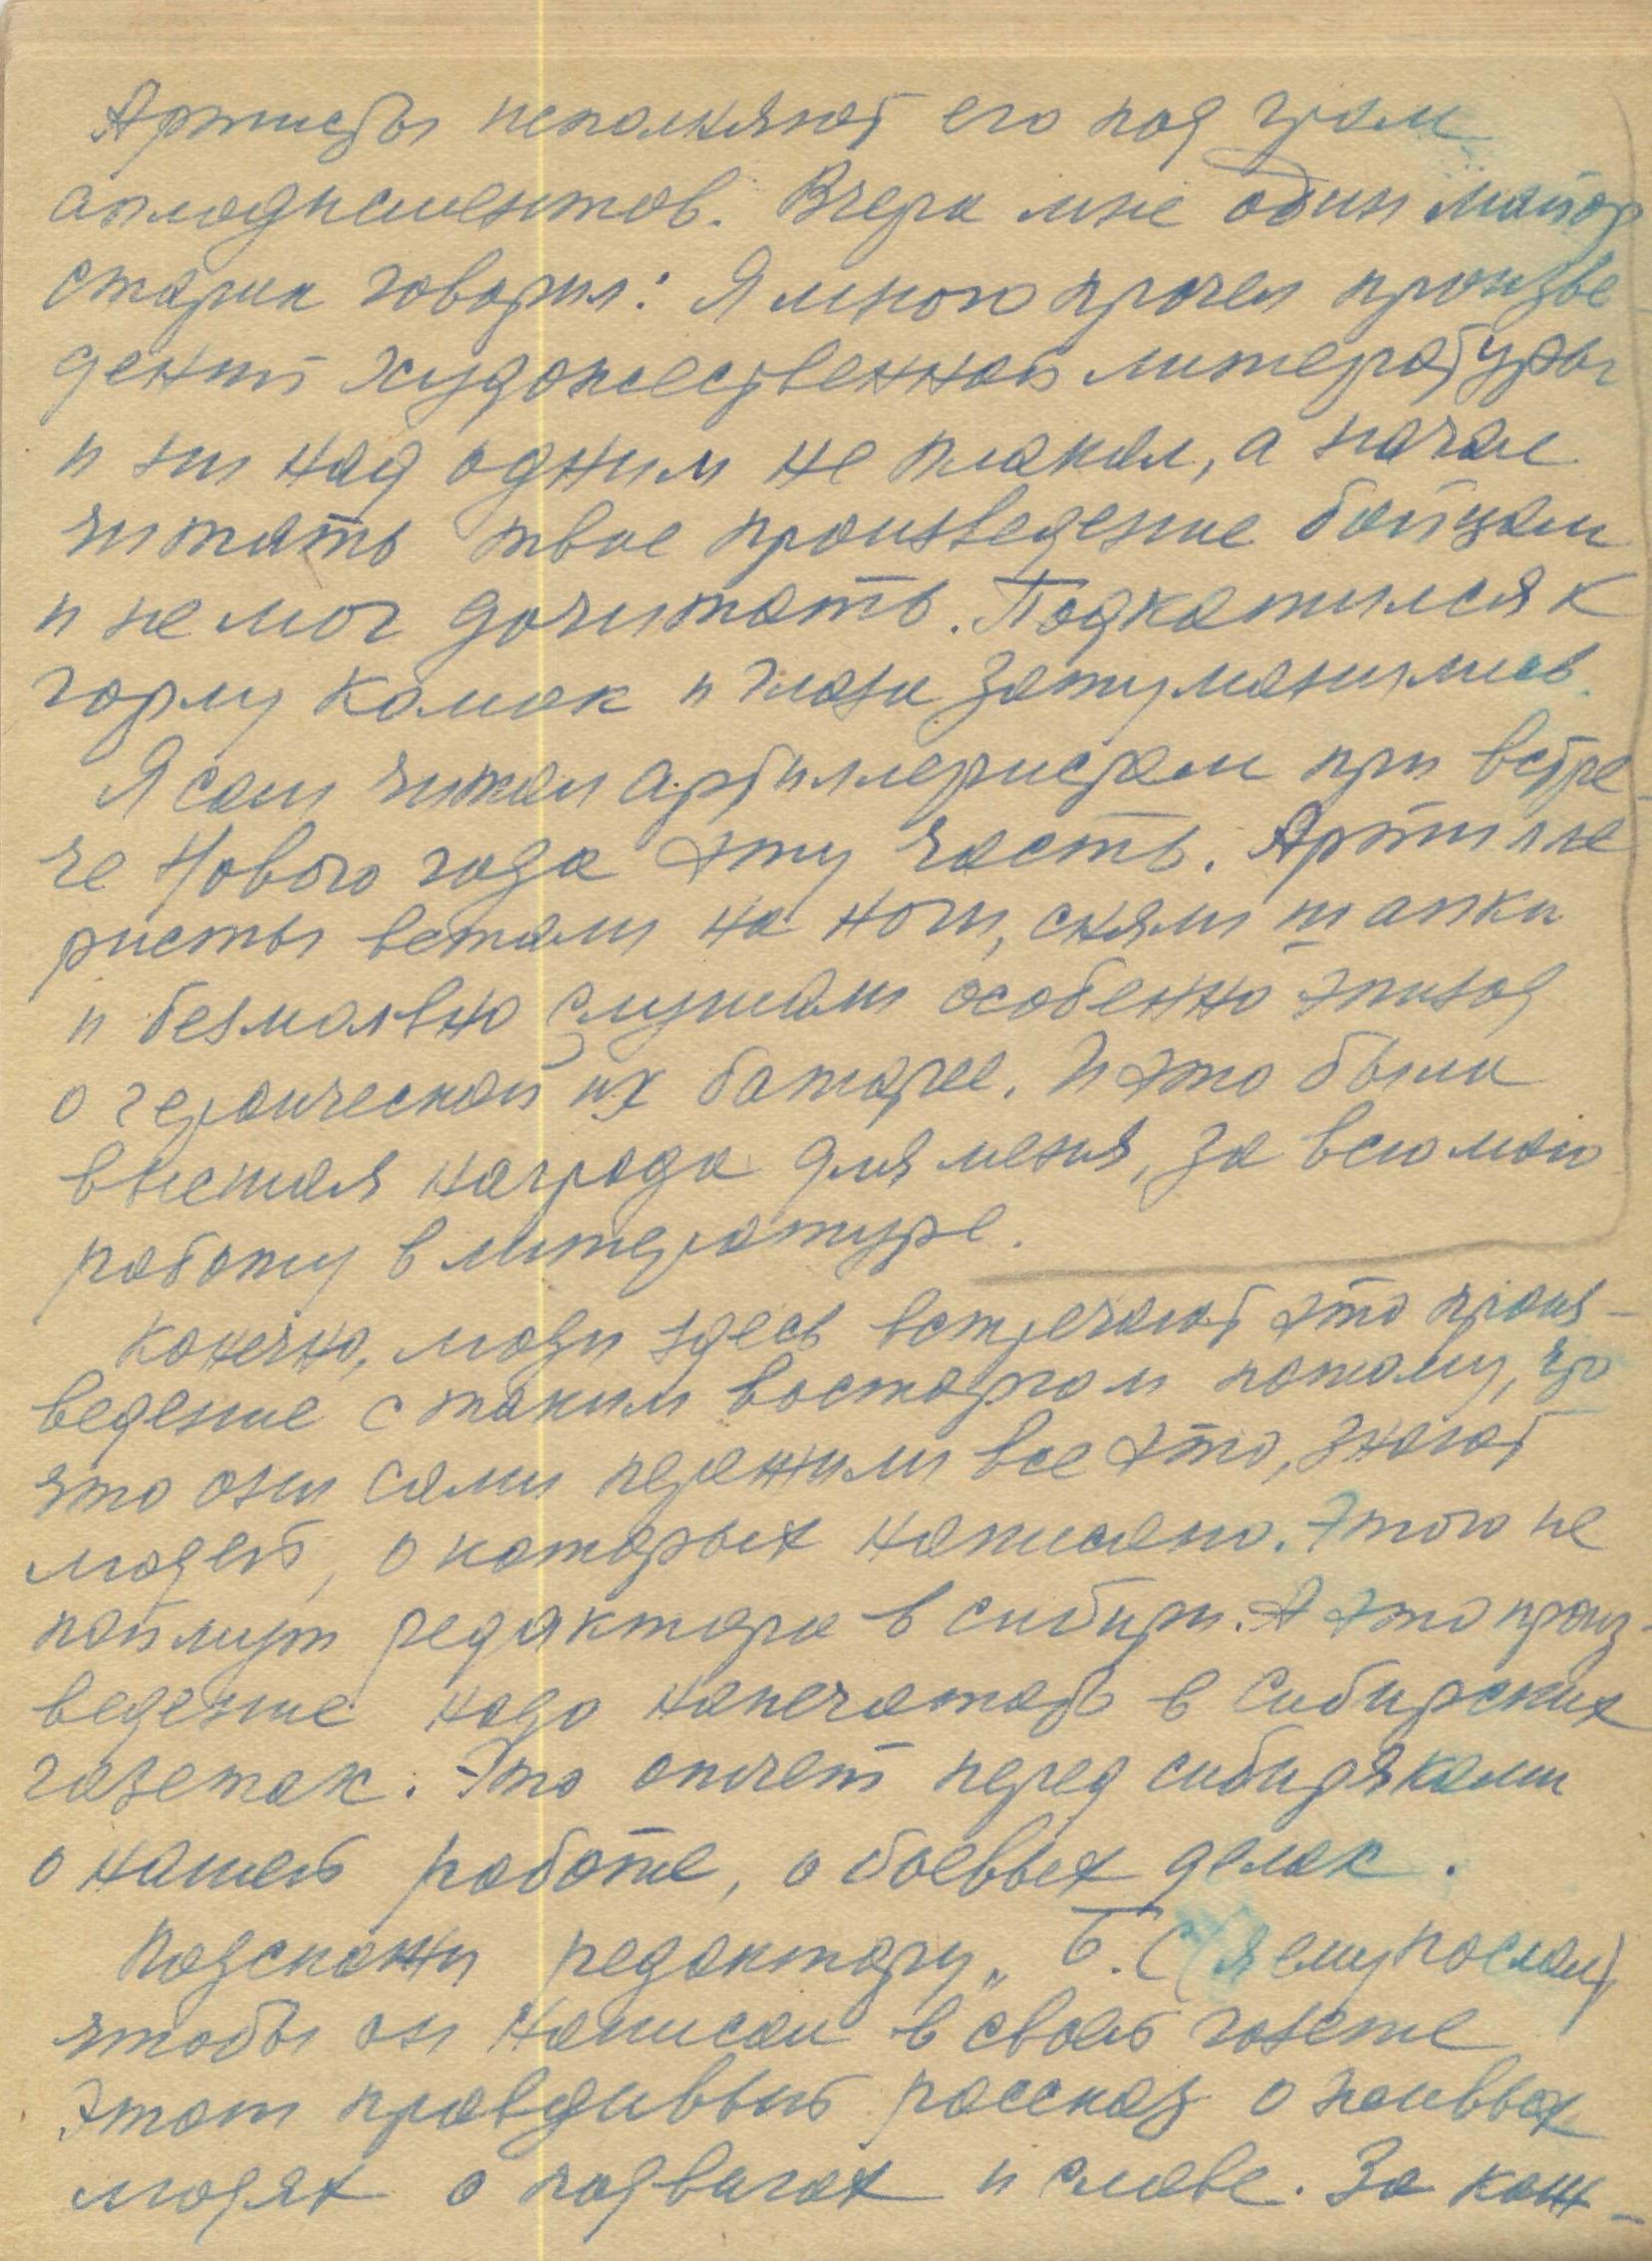 Артисты исполняют его под гром
аплодисментов. Вчера мне один майор
старик говорил: Я много прочел произве
дений художественной литературы
и ни над одним не плакал, а начал
читать твое произведение бойцам
и не мог дочитать. Подкатился к
горлу комок и глаза затуманились.
Я сам читал артиллеристам при встре-
че Нового года эту часть. Артилле
ристы встали на ноги, сняли шапки
и безмолвно слушали особенно эпизод
о героической их батарее. И это была
высшая награда для меня, за всю мою
работу в литературе.
Конечно, люди здесь встречают это произ-
ведение с таким восторгом потому, что
что они сами пережили все это, знают
людей, о которых написано. Этого не
поймут редактора в сибири. А это произ-
ведение надо напечатать в Сибирских
газетах. Это отчет перед сибиряками
о нашей работе, о боевых делах.
Подскажи редактору „Б.С (я ему послал)
чтобы он написал в своей газете
этот правдивый рассказ о живых
людях о подвигах и славе. За каж-